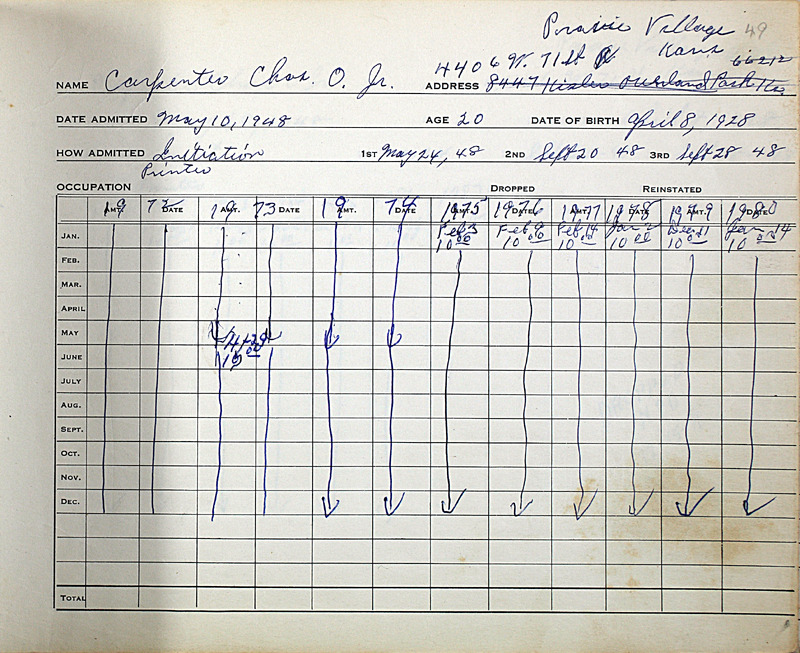 Prairie Village 49
4406 W. 71st Kans 66212
NAME Carpenter Chas. O. Jr. ADDRESS 8447 Overland Park Ks.
DATE ADMITTED May 10, 1948 AGE 20 DATE OF BIRTH April 8, 1928
HOW ADMITTED Initiation 1ST May 24, 48 2ND Sept 20 48 3RD Sept 28 48
Printer
OCCUPATION DROPPED REINSTATED
AMT. 19 72 DATE 19 AMT. 73 DATE 19 AMT. 74 DATE 1975 AMT. 1976 DATE 1977 AMT. 1978 DATE 1979 AMT. 1980 DATE
JAN. Feb 3 Feb 9 Feb 14 Jan Dec 11 Jan 14
10 00 10 00 10 00 10 00 10 00 10 00
FEB.
MAR.
APRIL
MAY
JUNE 10 00
JULY
AUG.
SEPT.
OCT.
NOV.
DEC.
TOTAL